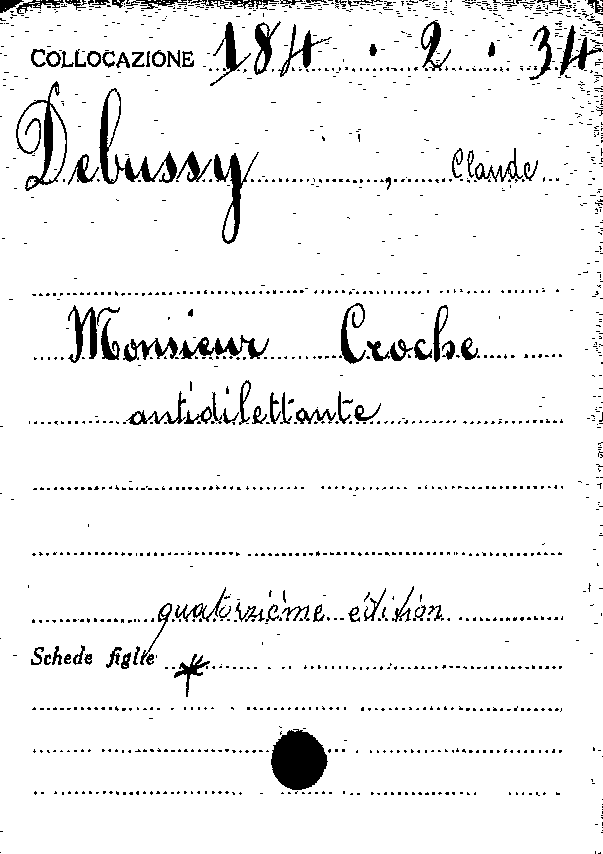 COLLOCAZIONE 184 · 2 · 34
Debussy, Claude
Monsieur Croche
antidilettante
quatorzième édition
Schede figlie *